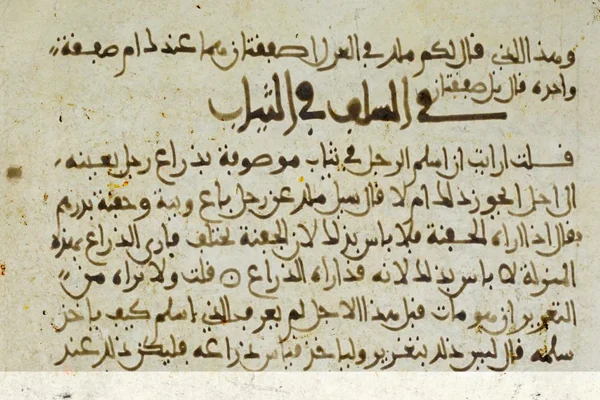 وهذا الذي قال لكم ملك في صفقتان هما عندك ام صفقة
واحدة قال بل صفقتان
في السلف في الثياب
قلت ارايت ان اسلم الرجل في ثياب موصوفة بذراع رجل بعينه
الى اجل ايجوز ذلك ام لا قال سيل ملك عن رجل باع ويبة وحفنة بدرهم
فقال اذا اراه الحفنة فلا باس بذلك لان الحفنة تختلف فارى الذراع بهذه
المنزلة لا باس بذلك لانه قد اراه الذراع قلت ولا تراه من
التغرير ان هو مات قبل هذا الاجل لم يعرف الذي اسلم كيف ياخذ
سلمه قال ليس ذلك بتغرير ولياخذ قياس ذراعه فليكن ذلك عند